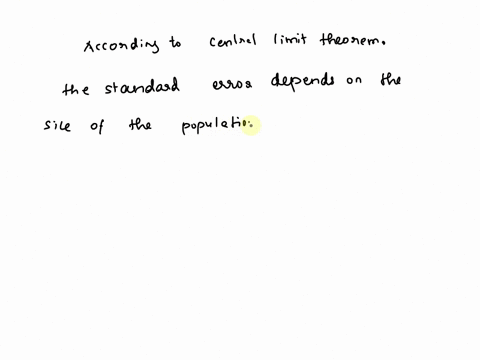 According to central limit theorem.
the standard error depends on the
size of the populatio